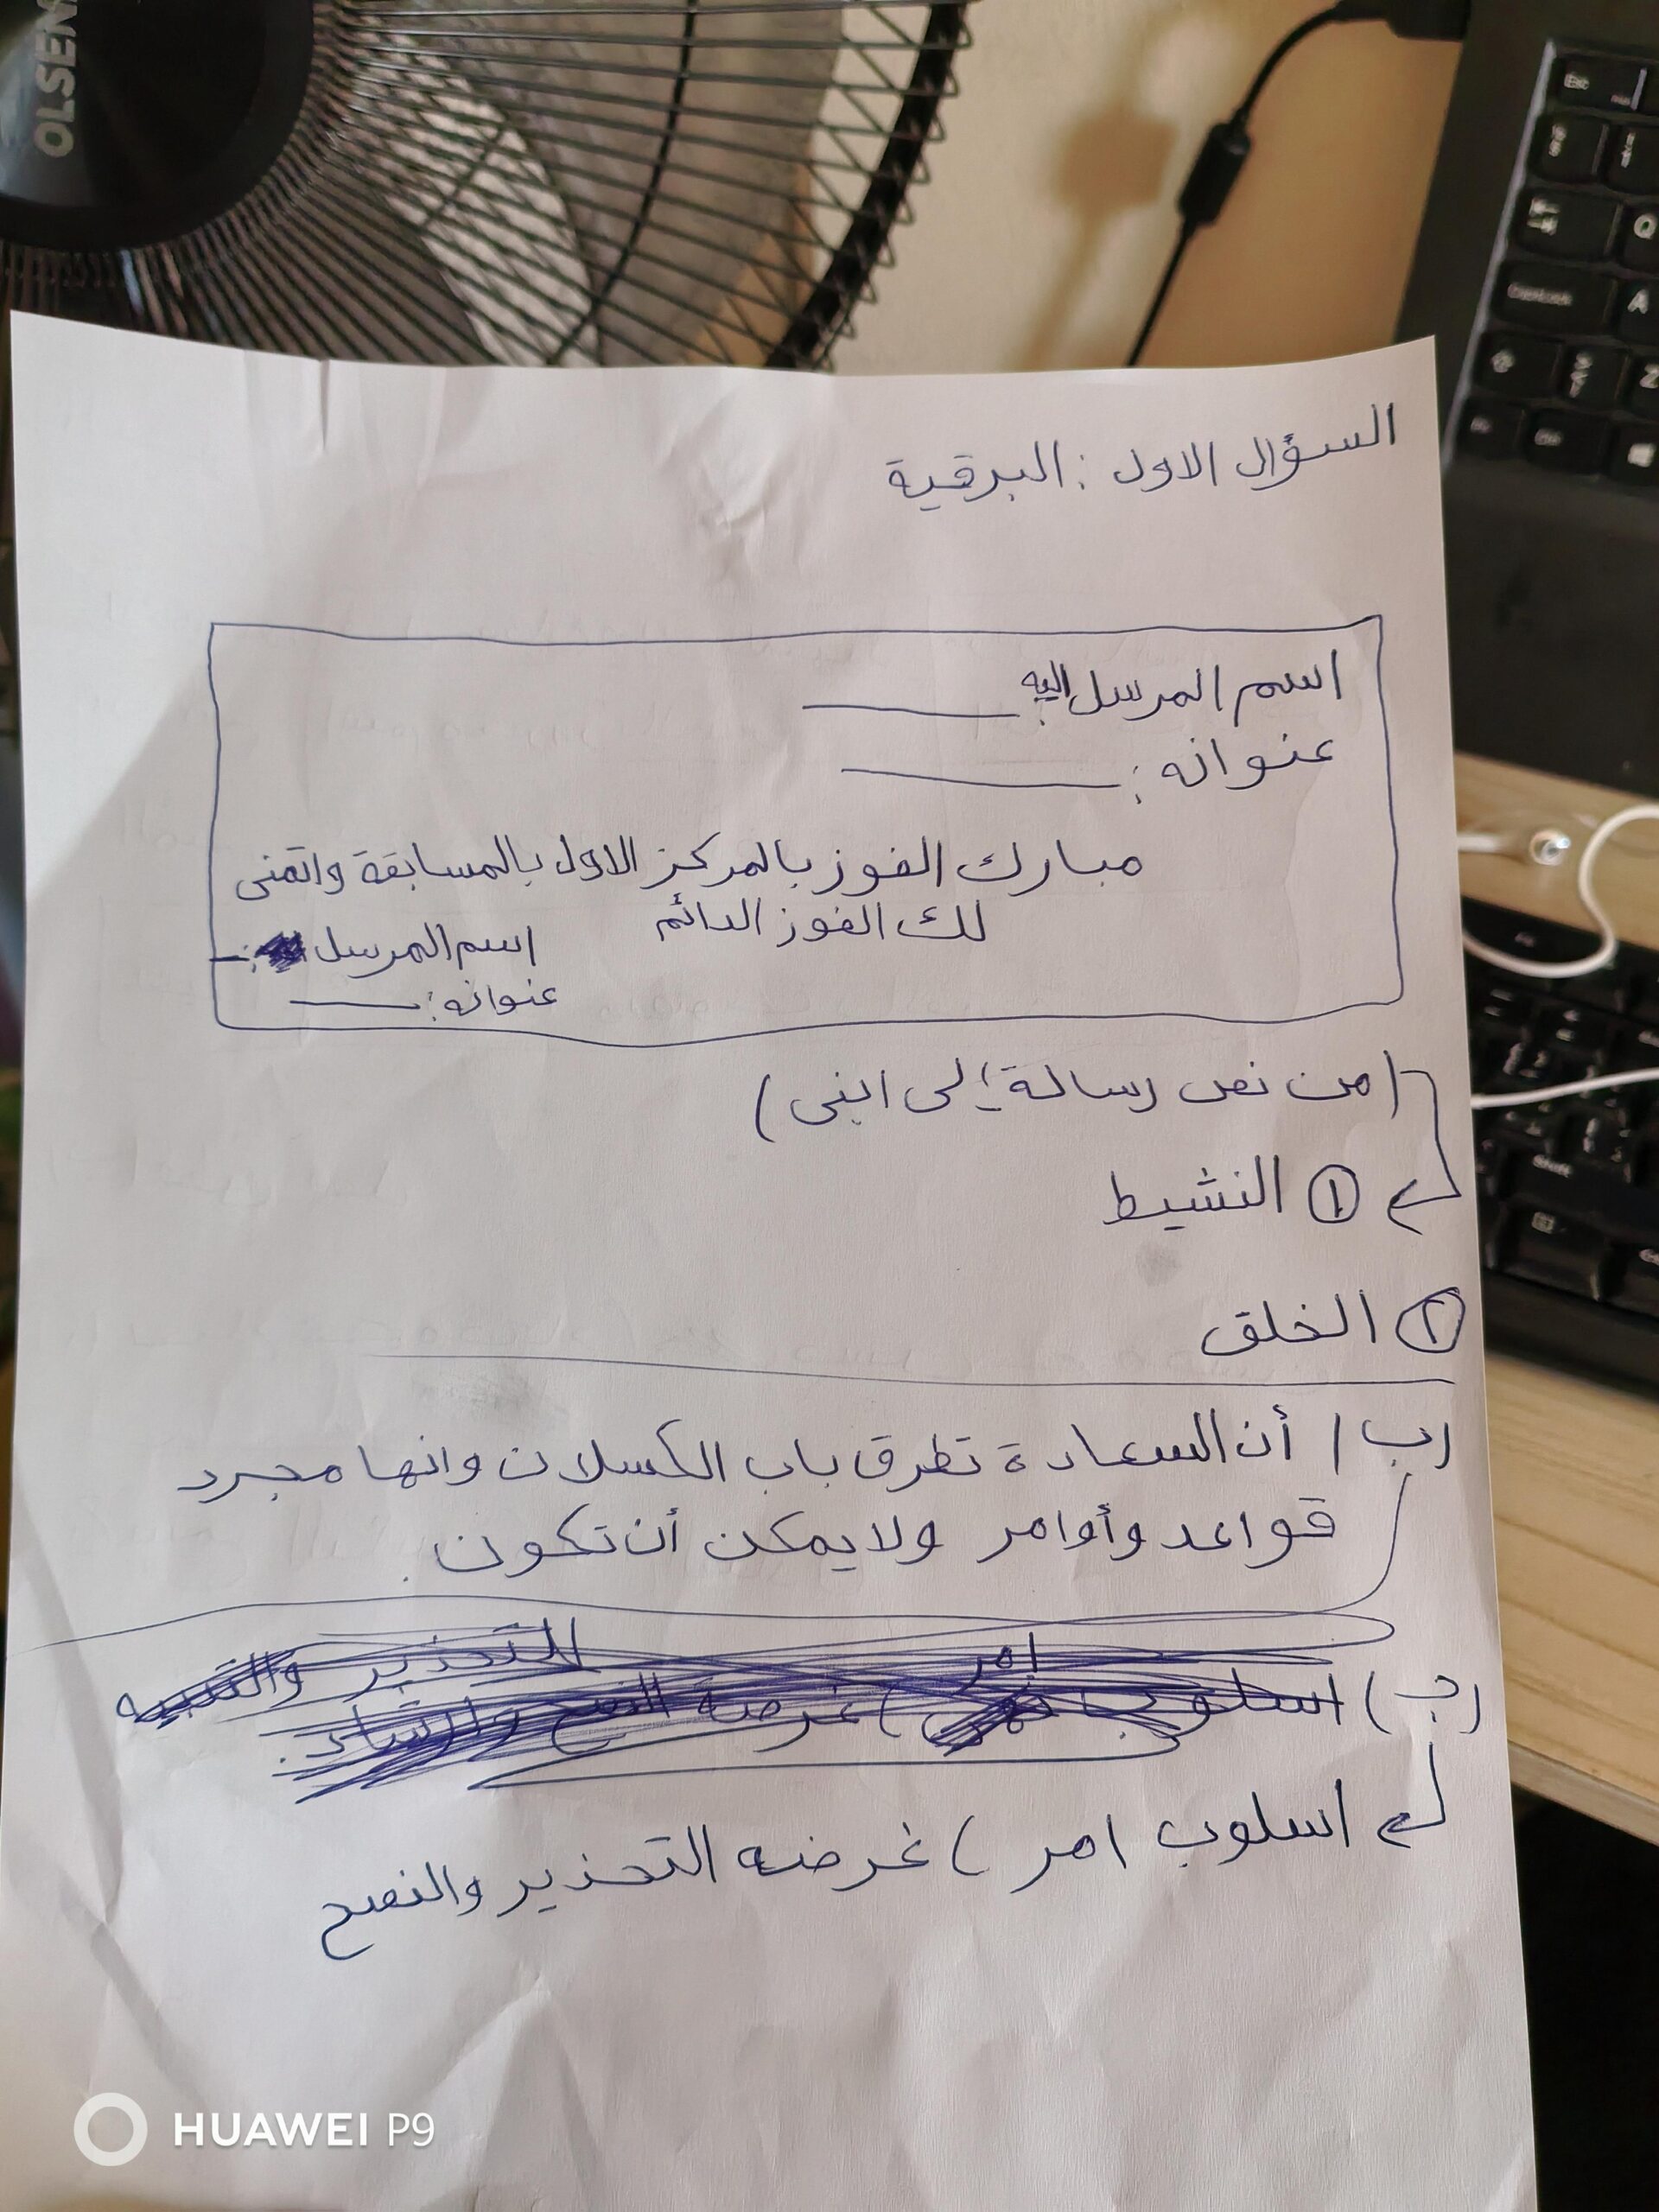 OLSEN
السؤال الاول : البرقية
اسم المرسل اليه:
عنوانه :
مبارك الفوز بالمركز الاول بالمسابقة واتمنى
لك الفوز الدائم
اسم المرسل :
عنوانه :
(من نص رسالة إلى ابني)
١ النشيط
٢ الخلق
(ب / أن السعادة تطرق باب الكسلان وانها مجرد
قواعد وأوامر ولا يمكن أن تكون.
للتحذير والتنبيه
امر
(ب) اسلوب ) غرضة النصح وارشاد.
اسلوب امر ) غرضه التحذير والنصح
Esc
Q
CapsLock
A
Z
Shift
HUAWEI P9